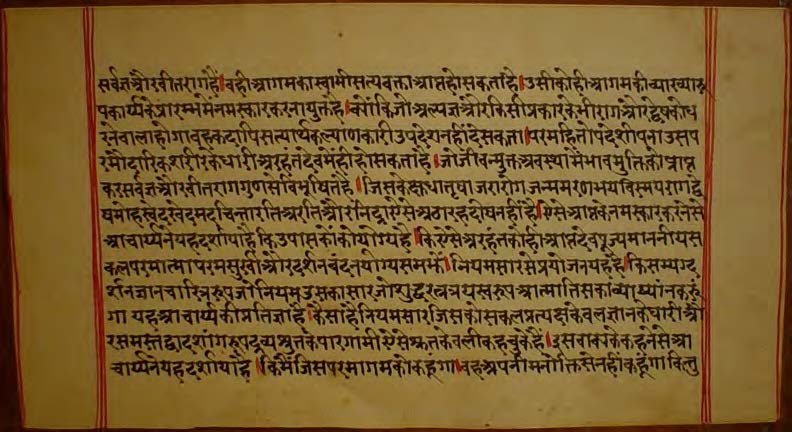 सर्वज्ञ और वीतराग है। वही आगम का स्वामी सत्यवक्ता आप्त हो सकता है। उसी को ही आगम की व्याख्यारू
प कार्य्य के प्रारम्भ में नमस्कार करना युक्त है। क्योंकि जो अल्पज्ञ और किसी प्रकार के भी राग और द्वेष को ध
रने वाला होगा वह कदापि सत्यार्थ कल्याणकारी उपदेश नहीं दे सकता। परमहितोपदेशीपना उस प
रमौदारिक शरीर के धारी अरहंत देव में ही हो सकता है। जो जीवन्मुक्त अवस्था में भाव मुक्ति को प्राप्त
कर सर्वज्ञ और वीतराग गुण से विभूषित है। जिसके क्षुधा तृषा जरा रोग जन्म मरण भय विस्मय राग द्वे
ष मोह स्वेद खेद मद चिन्ता रति अरति और निद्रा ऐसे अठारह दोष नहीं हैं। ऐसे आप्त को नमस्कार करने से
आचार्य्य ने यह दर्शाया है कि उपासकों को योग्य है। कि ऐसे अरहंत को ही आप्त देव पूज्य माननीय स
कल परमात्मा परमसुखी और दर्शन वंदन योग्य समझें। नियमसार से प्रयोजन यह है। कि सम्यग्द
र्शन ज्ञान चारित्ररूप जो नियम उसका सार जो शुद्ध रत्नत्रय स्वरूप आत्मा तिसका व्याख्यान करूं
गा यह आचार्य्य की प्रतिज्ञा है। कैसा है नियमसार जिसको सकल प्रत्यक्ष केवलज्ञान के धारी औ
र समस्त द्वादशांगरूप द्रव्यश्रुत के पारगामी ऐसे श्रुतकेवली कह चुके हैं। इस वाक्य के कहने से आ
चार्य्य ने यह दर्शाया है। कि मैं जिस परमागम को कहूंगा। वह अपनी मनोक्ति से नहीं कहूंगा किन्तु